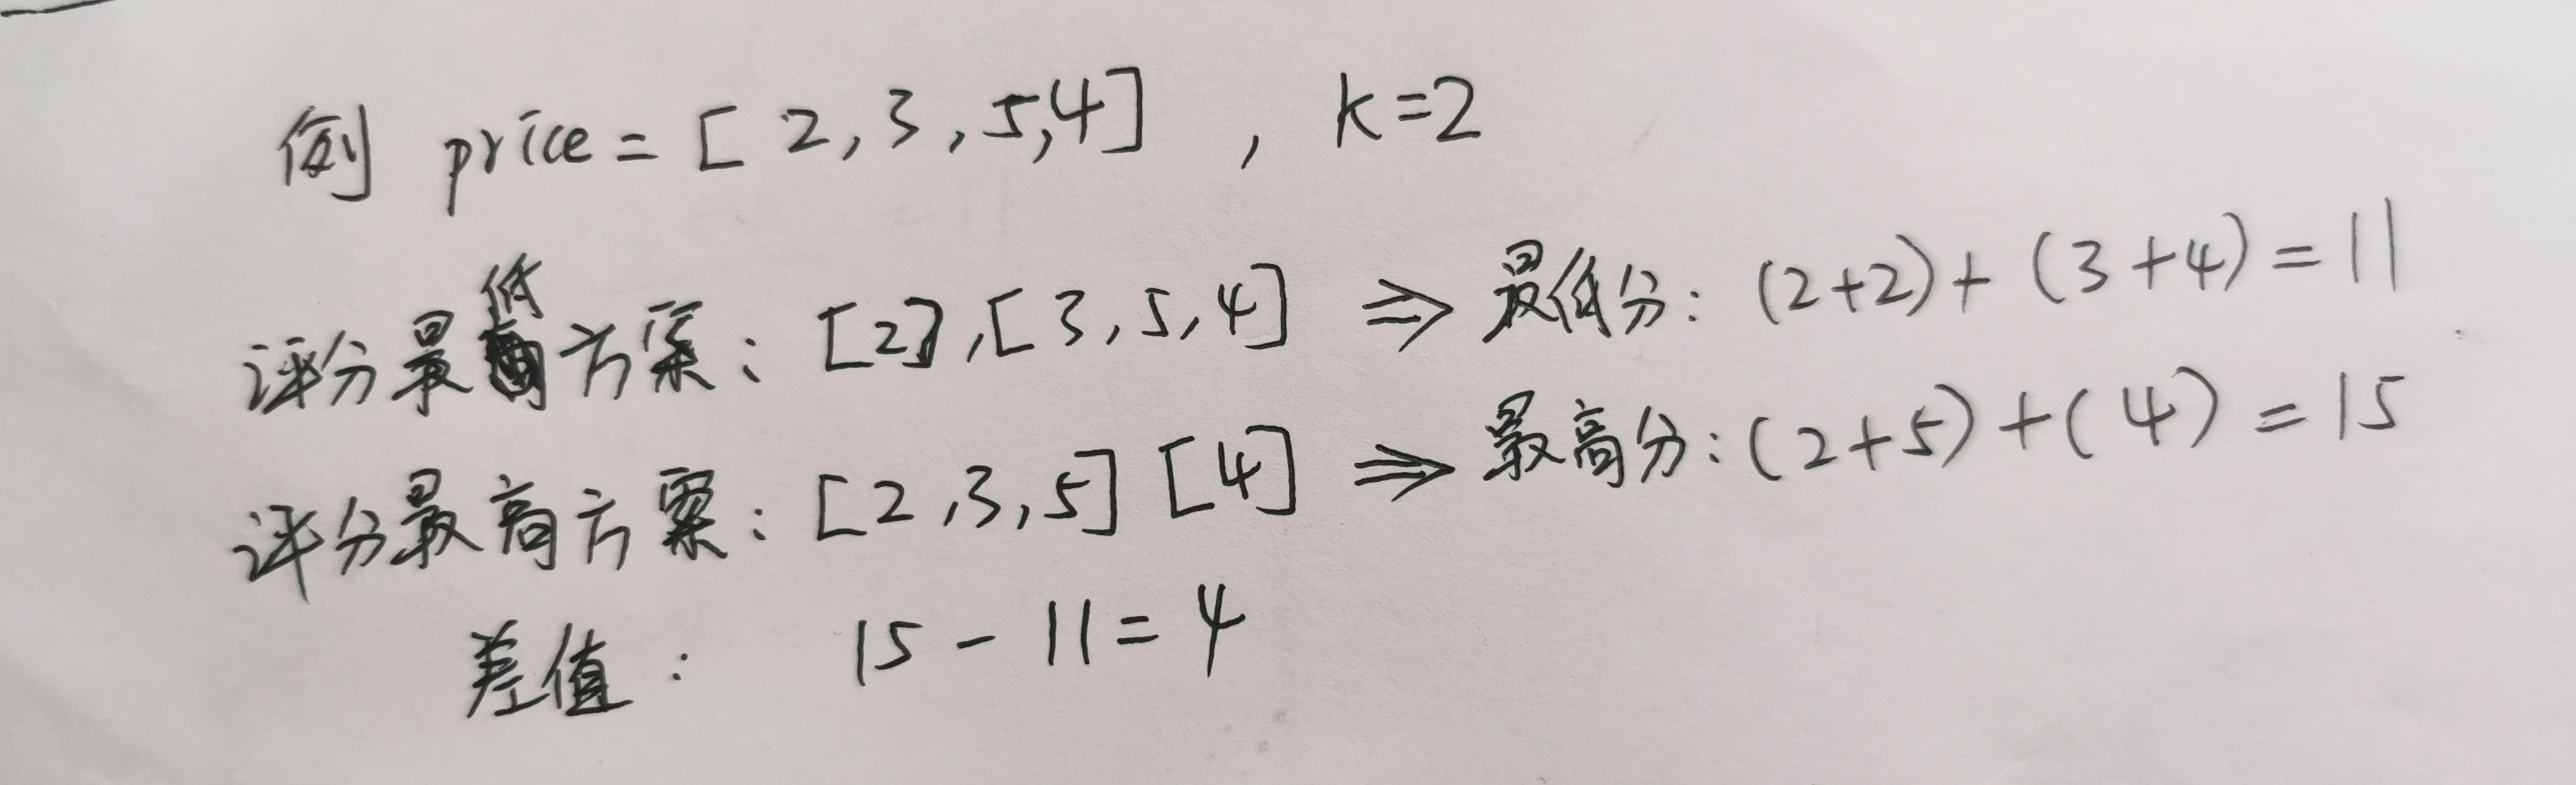 例 price = [2,3,5,4] , k=2
评分最低方案: [2],[3,5,4] ⇒ 最低分: (2+2)+(3+4)=11
评分最高方案: [2,3,5] [4] ⇒ 最高分: (2+5)+(4)=15
差值: 15-11=4